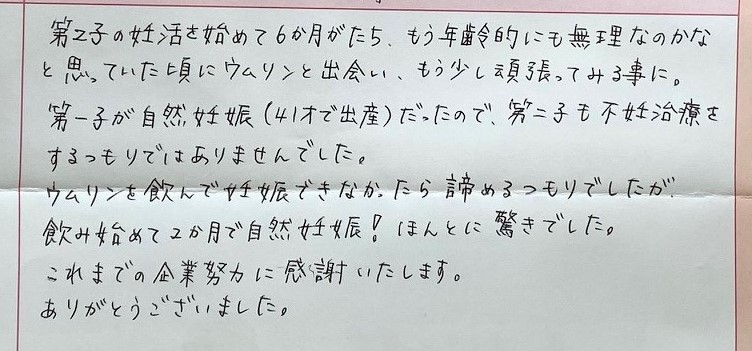 第2子の妊活を始めて6か月がたち、もう年齢的にも無理なのかな
と思っていた頃にウムリンと出会い、もう少し頑張ってみる事に。
第一子が自然妊娠(41才で出産)だったので、第二子も不妊治療を
するつもりではありませんでした。
ウムリンを飲んで妊娠できなかったら諦めるつもりでしたが、
飲み始めて2か月で自然妊娠!ほんとに驚きでした。
これまでの企業努力に感謝いたします。
ありがとうございました。